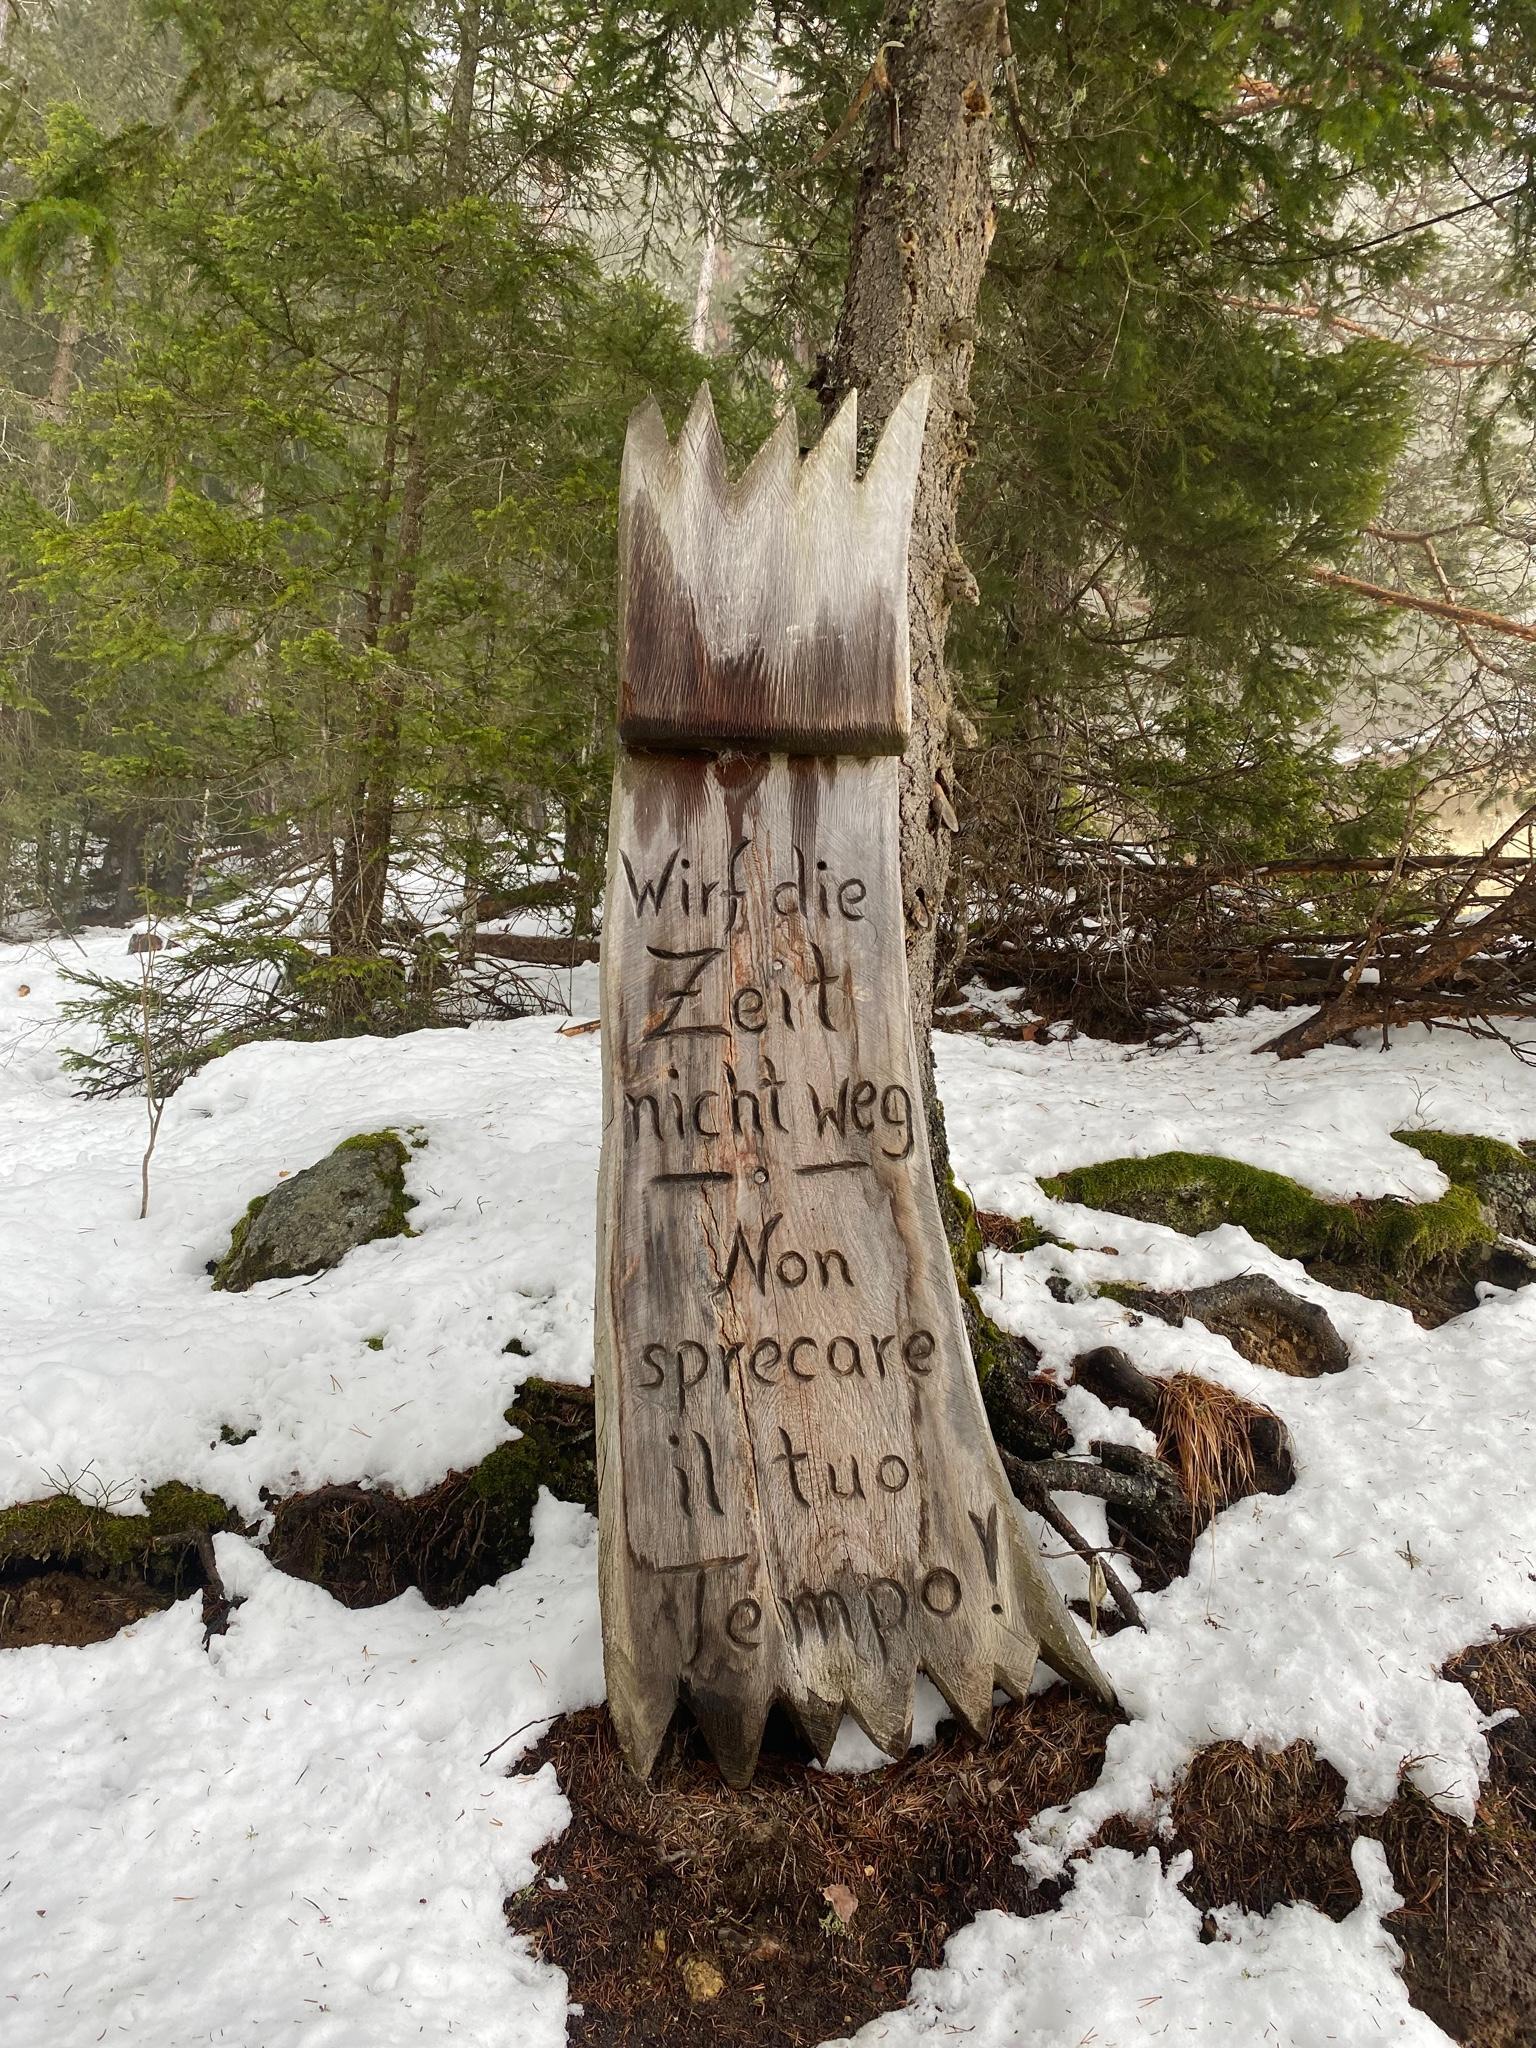 Wirf die
Zeit
nicht weg
— • —
Non
sprecare
il tuo
Tempo!